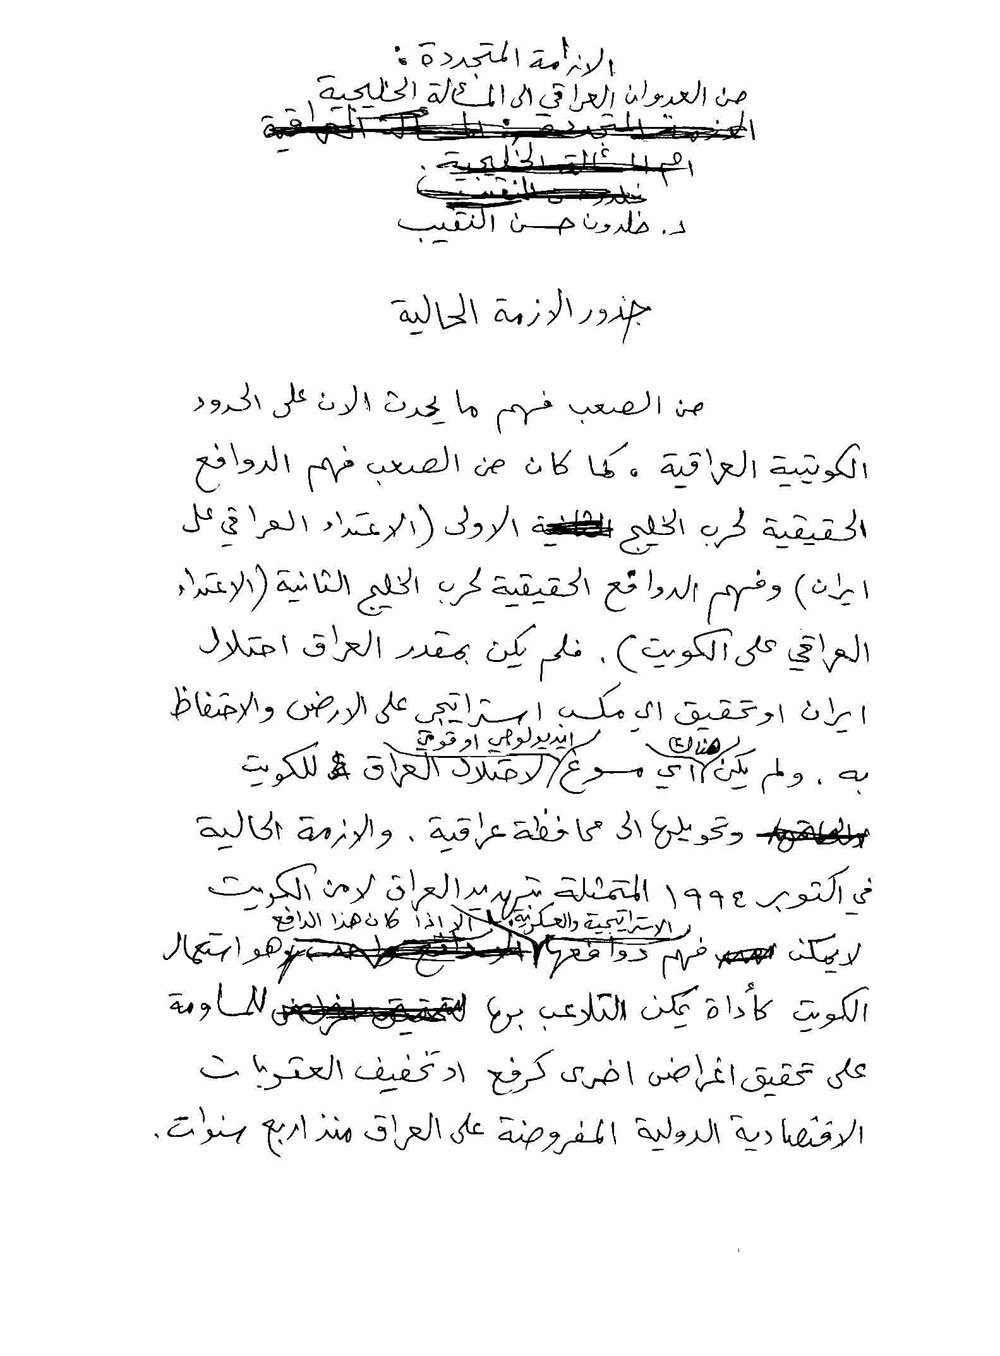 الازمة المتجددة :
من العدوان العراقي الى المسألة الخليجية
الازمة المتجددة : المسألة العراقية
ام المسألة الخليجية .
خلدون النقيب
د. خلدون حسن النقيب
جذور الازمة الحالية
من الصعب فهم ما يحدث الان على الحدود
الكويتية العراقية ، كما كان من الصعب فهم الدوافع
الحقيقية لحرب الخليج الثانية الاولى (الاعتداء العراقي على
ايران) وفهم الدوافع الحقيقية لحرب الخليج الثانية (الاعتداء
العراقي على الكويت) . فلم يكن بمقدر العراق احتلال
ايران او تحقيق اي مكسب استراتيجي على الارض والاحتفاظ
به . ولم يكن هناك اي مسوغ ايديولوجي او قومي لاحتلال العراق للكويت
وتحويلها الى محافظة عراقية . والازمة الحالية
في اكتوبر ١٩٩٤ المتمثلة بتهديد العراق لامن الكويت
لا يمكن فهم دوافعها الاستراتيجية والعسكرية، الا اذا كان هذا الدافع هو استعمال
الكويت كأداة يمكن التلاعب بها لتحقيق اغراض للمساومة
على تحقيق اغراض اخرى كرفع او تخفيف العقوبات
الاقتصادية الدولية المفروضة على العراق منذ اربع سنوات .